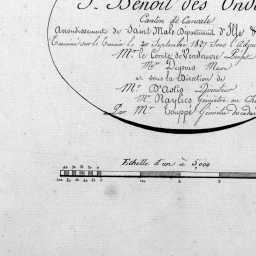 St. Benoit des Ond
Canton de Cancale
Arrondissement de Saint Malo Département d'Ille &
Terminé sur le Terrain le 20 Septembre 1827 sous l'Admi
Mr. le Comte de Vendeuvre Préfet
Mr. Maire
et sous la Direction de
Mr. D'Aslis Directeur
Mr. Géomètre en Che
Par Mr. Géomètre du cada
Echelle d'un à 5,000